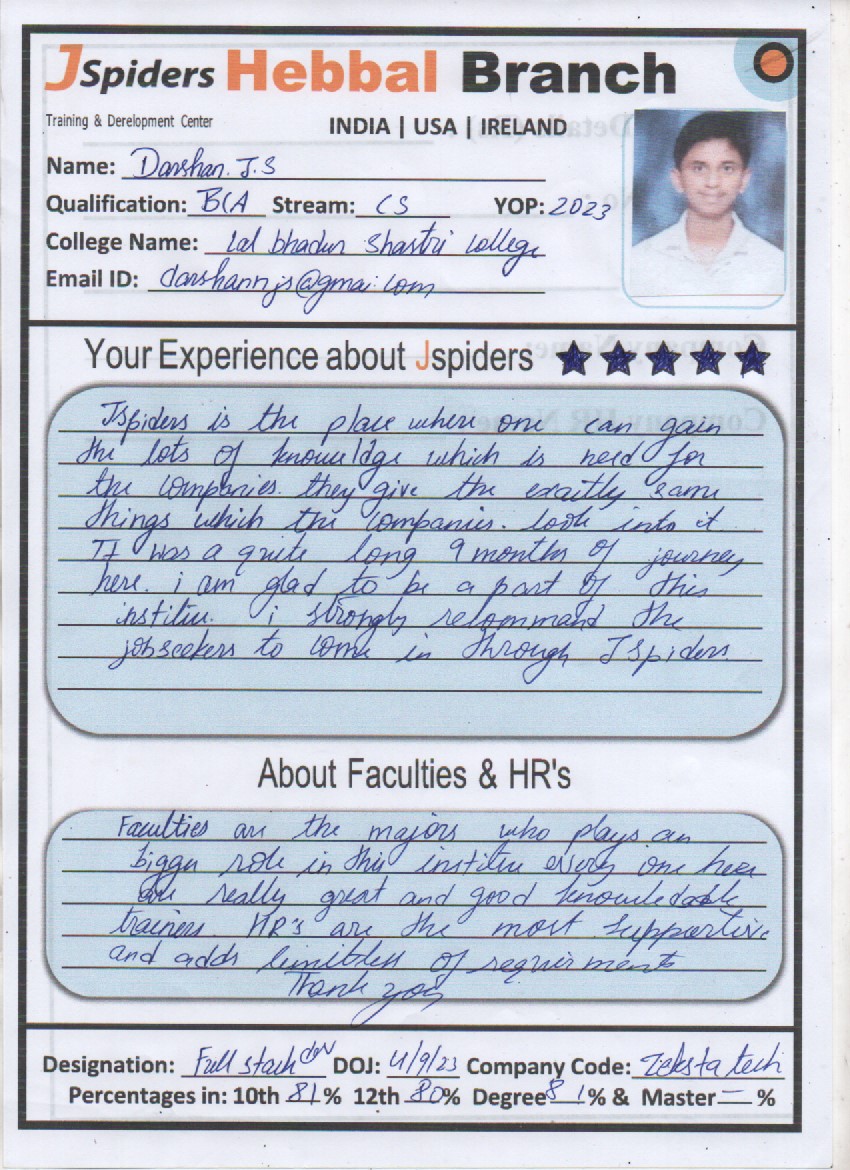 JSpiders Hebbal Branch
Training & Derelopment Center
INDIA | USA | IRELAND
Name: Darshan. J.S
Qualification: BCA Stream: CS YOP: 2023
College Name: Lal bhadur Shastri College
Email ID: darshannjs@gmai.com
Your Experience about Jspiders
Jspiders is the place where one can gain
the lots of knowledge which is need for
the companies. they give the exactly same
things which the companies. look into it
It was a quite long 9 months of journey
here. i am glad to be a part of this
institu. i strongly recommand the
jobseekers to come in through JSpiders.
About Faculties & HR's
Faculties are the majors who plays an
bigger role in this institu every one here
are really great and good knowledable
trainers. HR's are the most supportive
and adds limitless of requirments
Thank you
Designation: Full stack dev DOJ: 4/9/23 Company Code: Zeksta tech
Percentages in: 10th 81% 12th 80% Degree 81% & Master — %